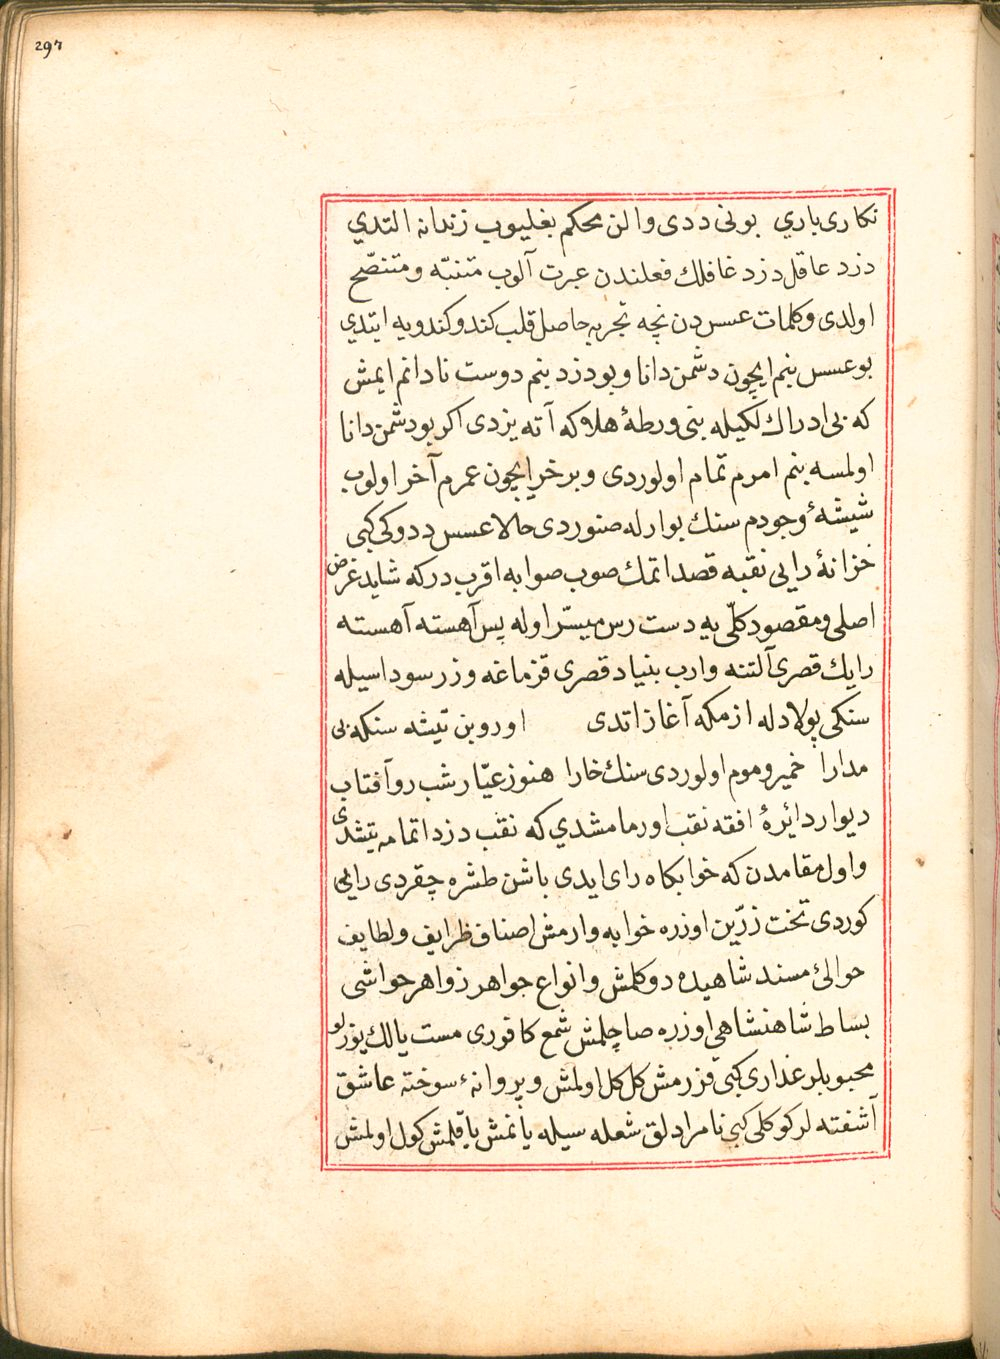 297
نكاری باری بونی ددی والن محكم بغلیوب زندانه التدی
دزد عاقل دزد غافلك فعلندن عبرت آلوب متنبّه ومتنصّح
اولدی وكلمات عسسدن نچه تجربه حاصل قلب كندو كندویه ایتدی
بو عسس بنم ایچون دشمن دانا وبو دزد بنم دوست نادانم ایمش
كه بی ادراك لكیله بنی ورطهٔ هلاكه آته یزدی اكر بو دشمن دانا
اولمسه بنم امرم تمام اولوردی وبر خر ایچون عمرم آخر اولوب
شیشهٔ وجودم سنك بوارله صنوردی حالا عسس ددوكی كبی
خزانهٔ رایی نقبه قصد اتمك صوب صوابه اقرب دركه شاید غرض
اصلی ومقصود كلّی یه دست رس میسّر اوله پس آهسته آهسته
رایك قصری آلتنه وارب بنیاد قصری قزماغه وزر سوداسیله
سنكی پولادله ازمكه آغاز اتدی اوروبن تیشه سنكه بی
مدارا خمیر وموم اولوردی سنك خارا هنوز عیّار شب رو آفتاب
دیوار دائرهٔ افقه نقب اورمامشدی كه نقب دزد اتمامه یتشدی
واول مقامدن كه خوابكاه رای ایدی باشن طشره چقردی رایی
كوردی تخت زرّین اوزره خوابه وارمش اصناف ظرایف ولطایف
حوالیٔ مسند شاهیده دوكلمش وانواع جواهر زواهر حواشی
بساط شاهنشاهی اوزره صاچلمش شمع كافوری مست یالك یوزلو
محبوبلر عذاری كبی قزرمش كل كل اولمش وپروانهٔ سوخته عاشق
آشفته لر كوكلی كبی نامرادلق شعله سیله یانمش یاقلمش كول اولمش